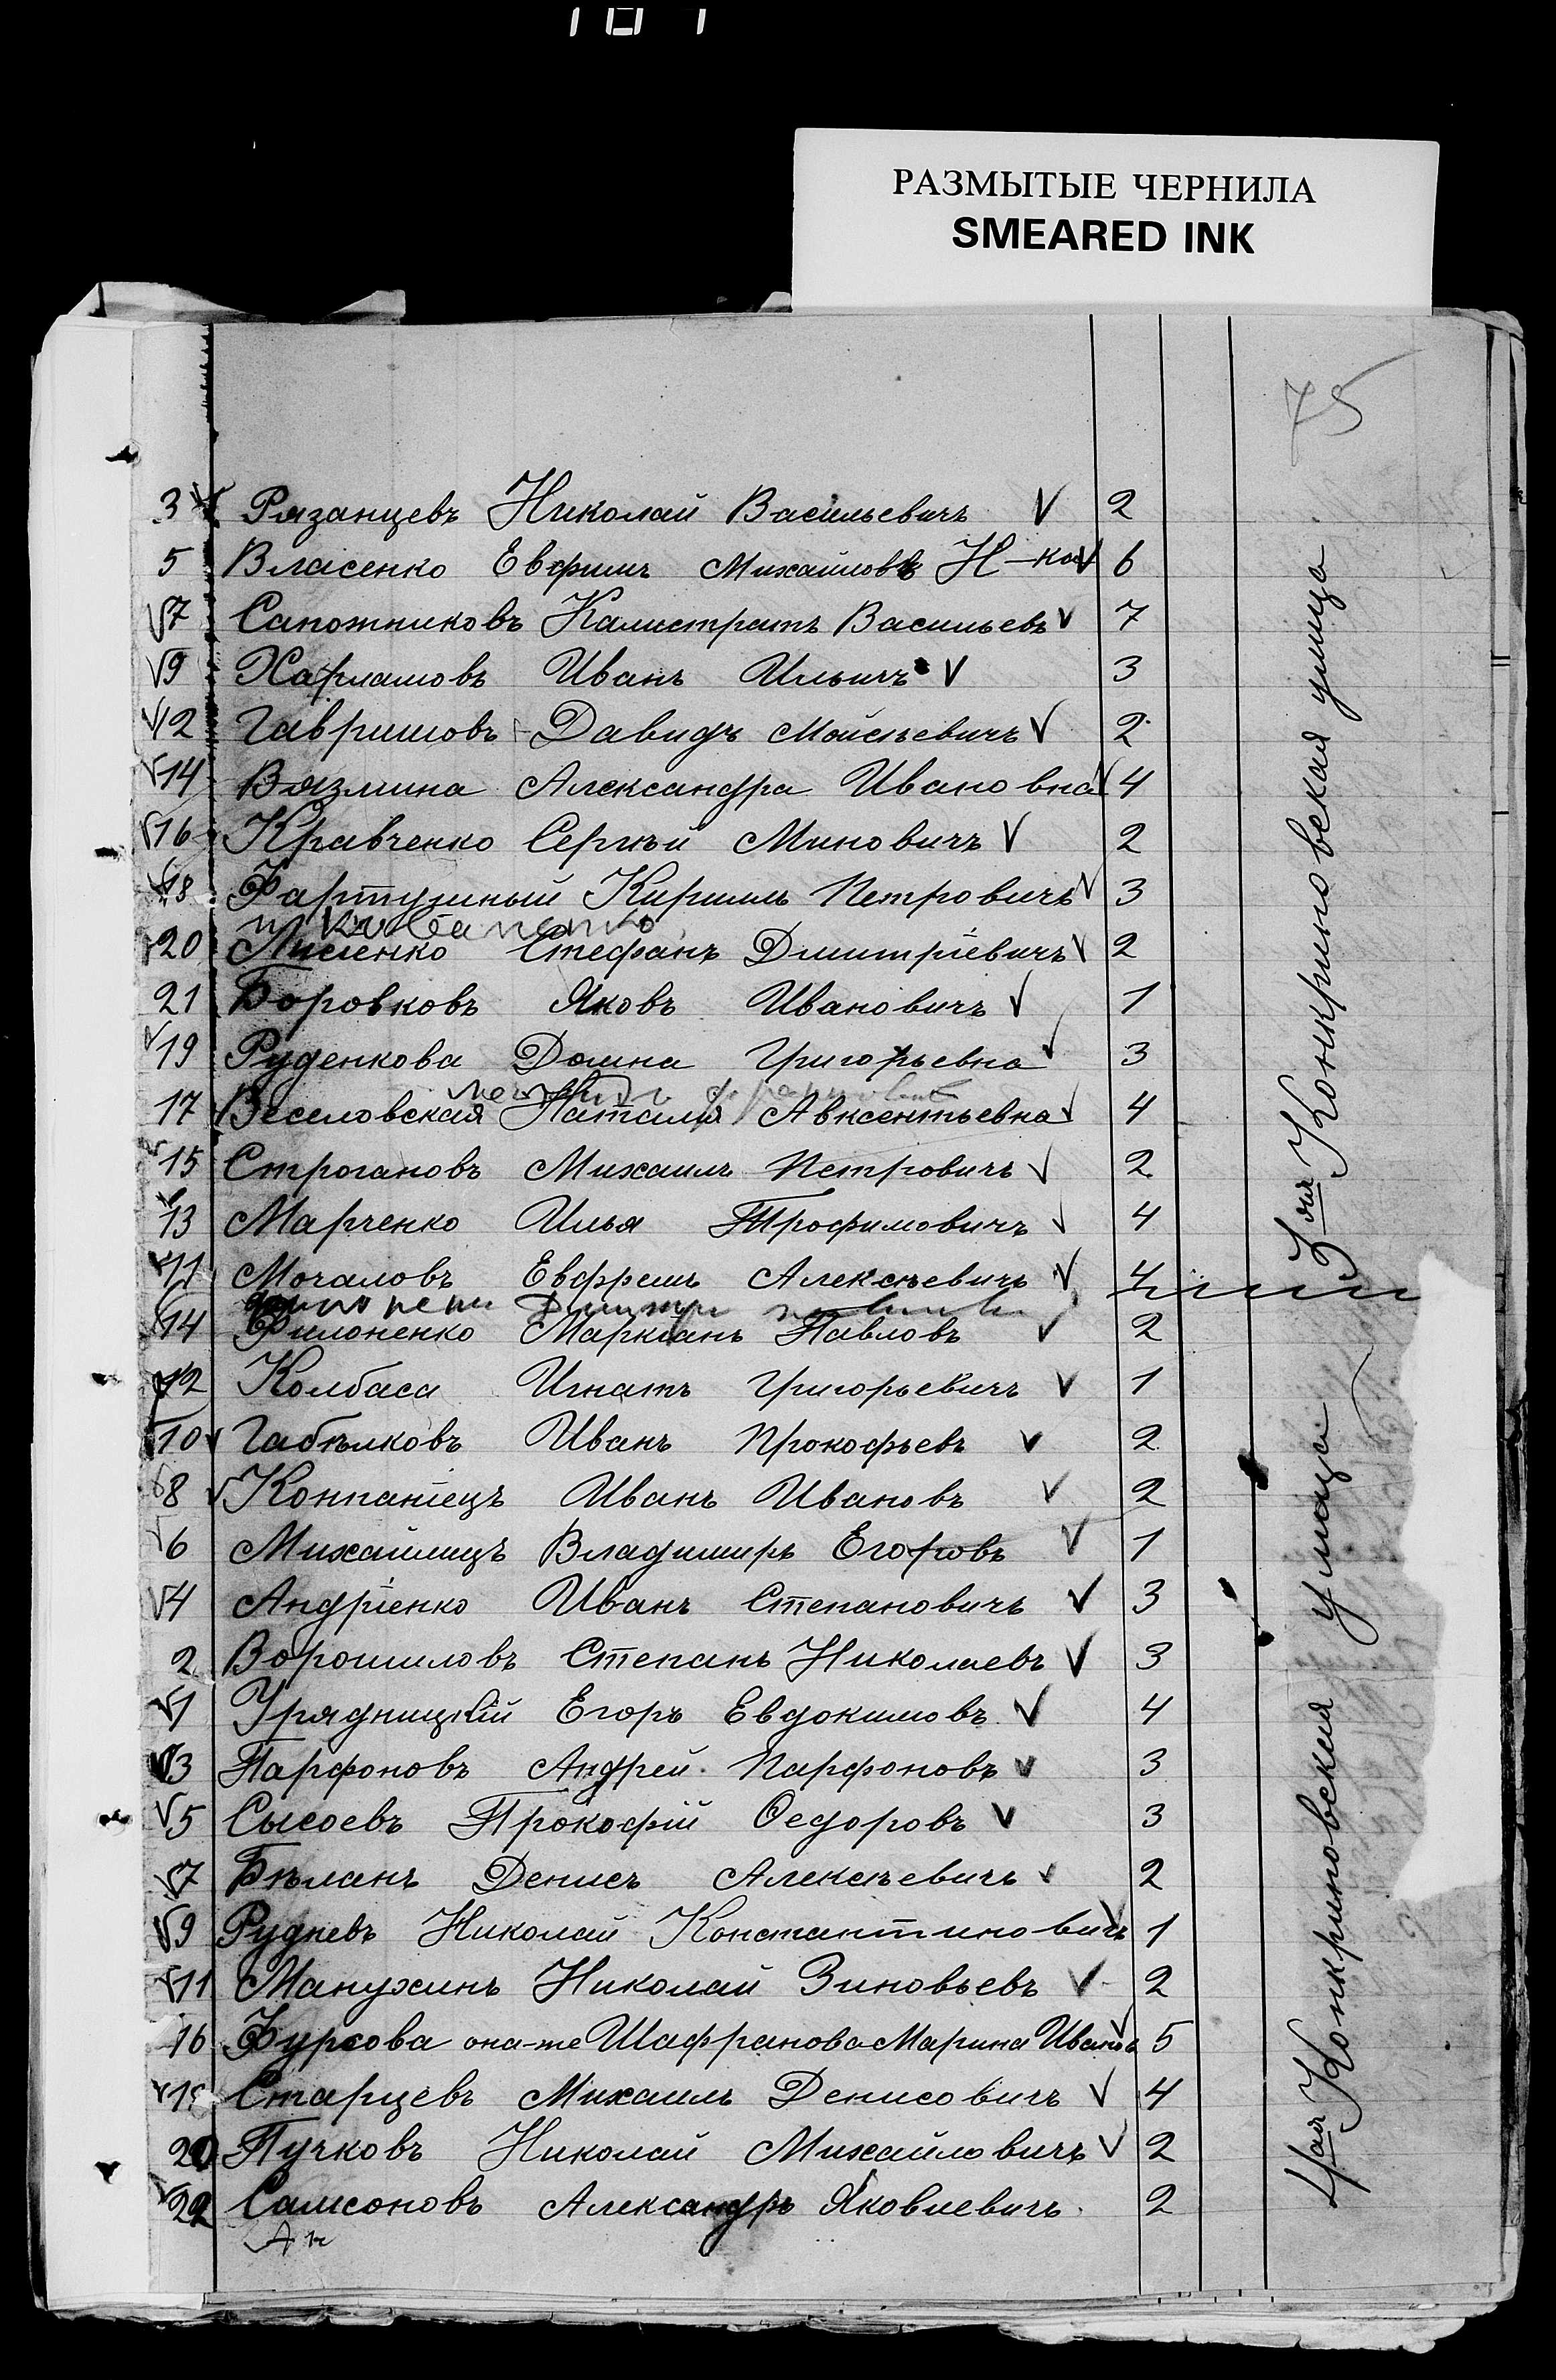 РАЗМЫТЫЕ ЧЕРНИЛА
SMEARED INK
75
3 Рязанцевъ Николай Васильевичъ 2
5 Власенко Евфимъ Михайловъ Н-ки 6
7 Сапожниковъ Калистратъ Васильевъ 7
9 Харламовъ Иванъ Ильичъ 3
12 Гавришовъ Давидъ Моисѣевичъ 2
14 Вязмина Александра Ивановна 4
16 Кравченко Сергѣй Миновичъ 2
18 Фартушный Кирилъ Петровичъ 3
20 Лисенко Стефанъ Дмитріевичъ 2
21 Боровковъ Яковъ Ивановичъ 1
19 Руденкова Домна Григорьевна 3
17 Веселовская Наталия Авксентьевна 4
15 Строгановъ Михаилъ Петровичъ 2
13 Марченко Илья Трофимовичъ 4
11 Мочаловъ Ефремъ Алексѣевичъ 4
3ая Конкриновская улица
14 Филоненко Маркіанъ Павловъ 2
12 Колбаса Игнатъ Григорьевичъ 1
10 Габѣлковъ Иванъ Прокофьевъ 2
8 Конпаніецъ Иванъ Ивановъ 2
6 Михайлицъ Владимиръ Егоровъ 1
4 Андріенко Иванъ Степановичъ 3
2 Ворошиловъ Степанъ Николаевъ 3
1 Урядницкій Егоръ Евдокимовъ 4
3 Парфоновъ Андрей Парфоновъ 3
5 Сысоевъ Прокофій Ѳедоровъ 3
7 Бѣланъ Денисъ Алексѣевичъ 2
9 Рудневъ Николай Константиновичъ 1
11 Манухинъ Николай Зиновьевъ 2
16 Фурсова она-же Шафранова Марина Иванов 5
Старцевъ Михаилъ Денисовичъ 4
20 Пучковъ Николай Михайловичъ 2
22 Самсоновъ Александръ Яковлевичъ 2
4ая Конкриновская улица